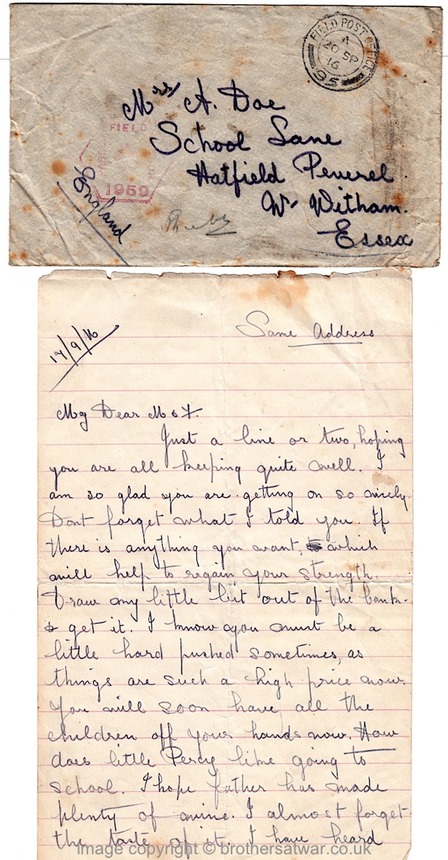 FIELD POST OFFICE
A
20 SP
16
Mrs A. Doe
School Lane
Hatfield Peverel
Nr Witham.
Essex
England
FIELD
1959
Same Address
17/9/16
My Dear M & F
Just a line or two, hoping
you are all keeping quite well. I
am so glad you are getting on so nicely
Dont forget what I told you. If
there is anything you want, which
will help to regain your strength.
Draw my little bit out of the bank.
& get it. I know you must be a
little hard pushed sometimes, as
things are such a high price now.
You will soon have all the
children off your hands now. How
does little Percy like going to
school. I hope father has made
plenty of wine. I almost forget
the taste of it. I have heard
Image copyright © brothersatwar.co.uk